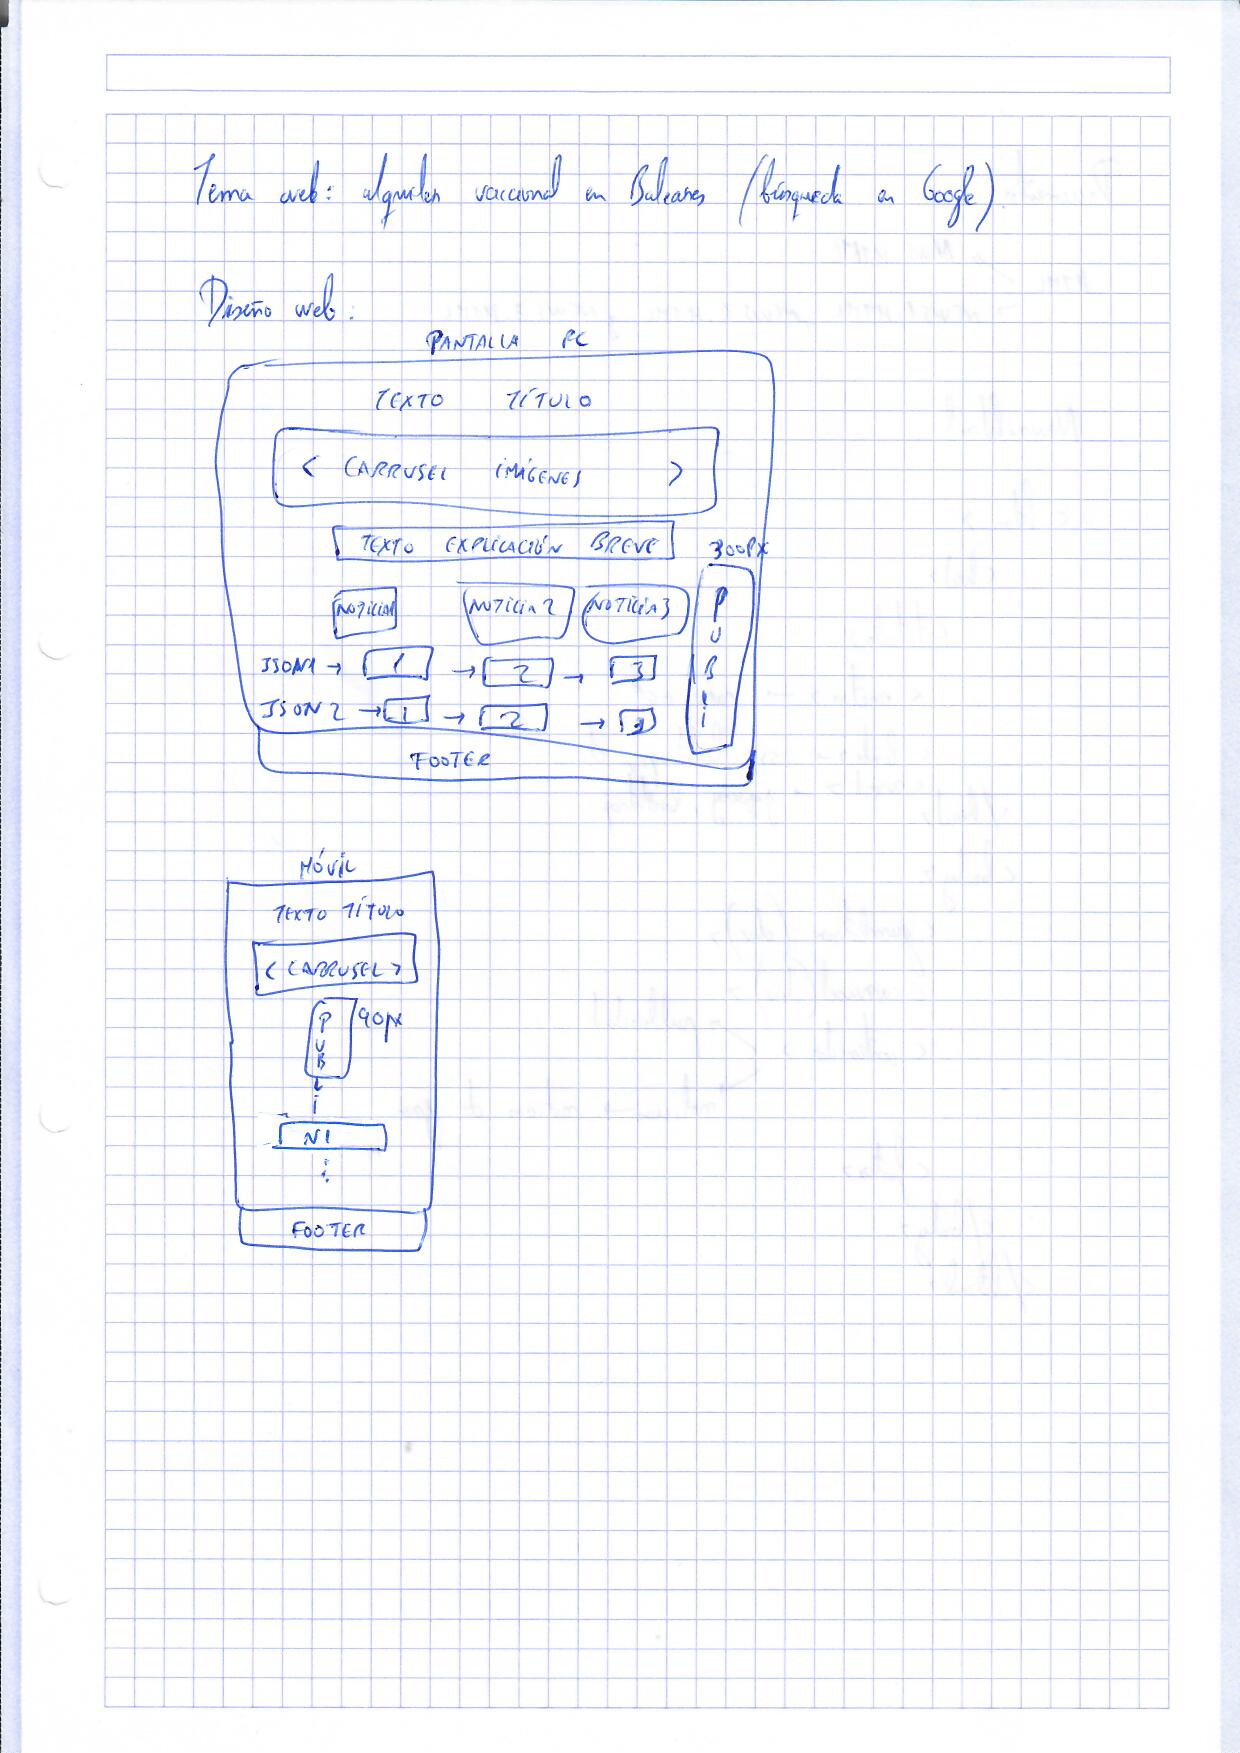 Tema web: alquiler vacacional en Baleares (búsqueda en Google)
Diseño web:
PANTALLA PC
TEXTO TÍTULO
< CARRUSEL IMÁGENES >
TEXTO EXPLICACIÓN BREVE
300PX
NOTICIA1 NOTICIA2 NOTICIA3
PUBLI
JSON1 → 1 → 2 → 3
JSON2 → 1 → 2 → 3
FOOTER
MÓVIL
TEXTO TÍTULO
< CARRUSEL >
PUBLI
90px
N1
FOOTER